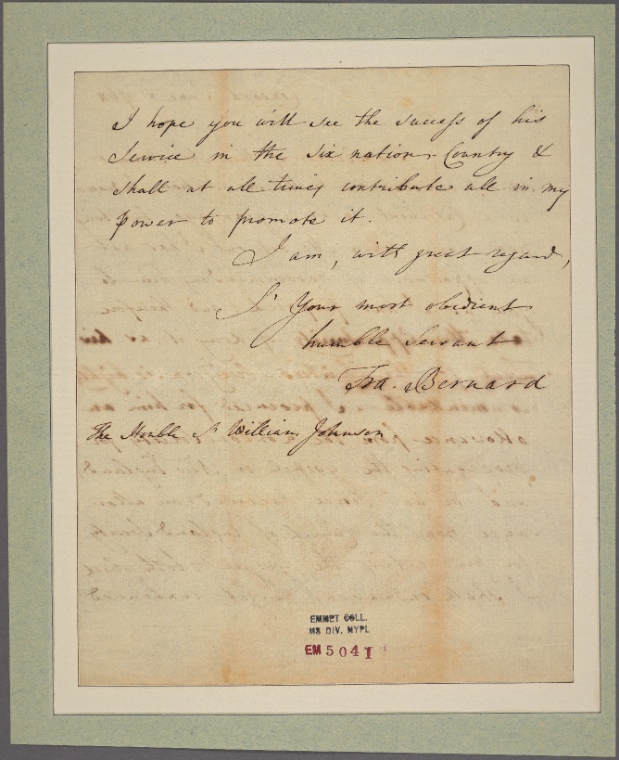 I hope you will see the success of his
Service in the Six nation Country &
shall at all times contribute all in my
power to promote it.
I am, with great regard,
Sr Your most obedient
humble Servant
Fra. Bernard
The Honble Sr William Johnson
EMMET COLL.
MS DIV. NYPL
EM 5041